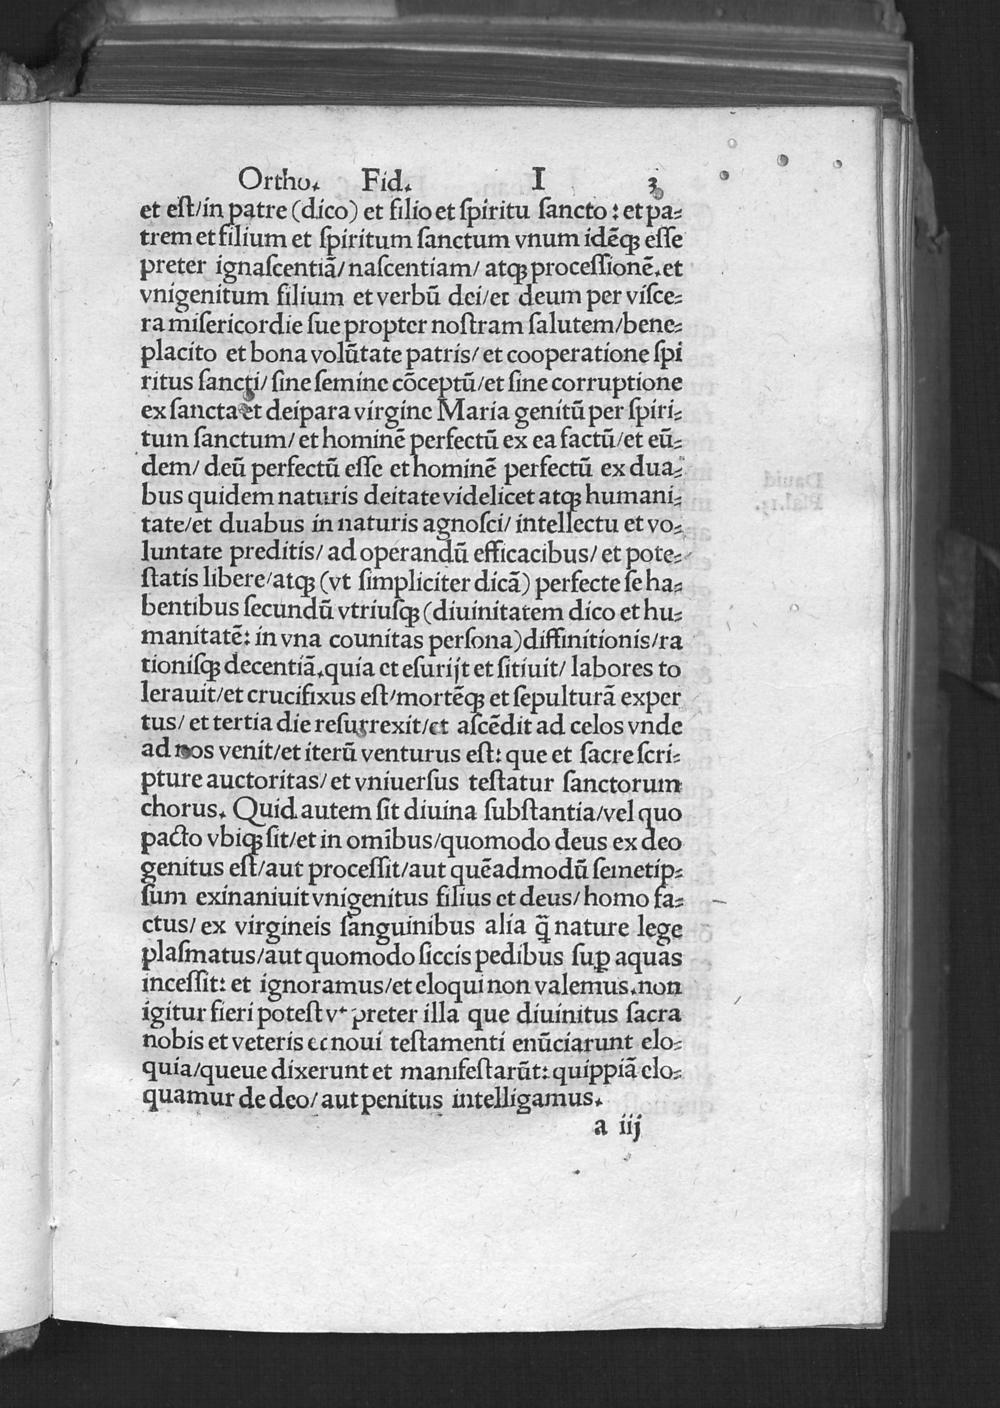 Ortho. Fid. I 3
et eſt/in patre (dico) et filio et ſpiritu ſancto : et pa⸗
trem et filium et ſpiritum ſanctum vnum idēꝗ eſſe
preter ignaſcentiā/ naſcentiam/ atꝗ proceſſionē. et
vnigenitum filium et verbū dei/et deum per viſce⸗
ra miſericordie ſue propter noſtram ſalutem/bene⸗
placito et bona volūtate patris/ et cooperatione ſpi
ritus ſancti/ ſine ſemine cōceptū/et ſine corruptione
ex ſancta et deipara virgine Maria genitū per ſpiri⸗
tum ſanctum/ et hominē perfectū ex ea factū/et eū⸗
dem/ deū perfectū eſſe et hominē perfectū ex dua⸗
bus quidem naturis deitate videlicet atꝗ humani⸗
tate/et duabus in naturis agnoſci/ intellectu et vo⸗
luntate preditis/ ad operandū efficacibus/ et pote⸗
ſtatis libere/atꝗ (vt ſimpliciter dicā) perfecte ſe ha⸗
bentibus ſecundū vtriuſꝗ (diuinitatem dico et hu⸗
manitatē: in vna counitas perſona)diffinitionis/ra
tioniſꝗ decentiā. quia et eſurijt et ſitiuit/ labores to
lerauit/et crucifixus eſt/mortēꝗ et ſepulturā exper
tus/ et tertia die reſurrexit/et aſcēdit ad celos vnde
ad nos venit/et iterū venturus eſt: que et ſacre ſcri⸗
pture auctoritas/ et vniuerſus teſtatur ſanctorum
chorus. Quid autem ſit diuina ſubſtantia/vel quo
pacto vbiꝗ ſit/et in omībus/quomodo deus ex deo
genitus eſt/aut proceſſit/aut quēadmodū ſemetip⸗
ſum exinaniuit vnigenitus filius et deus/ homo fa⸗
ctus/ ex virgineis ſanguinibus alia q̄ nature lege
plaſmatus/aut quomodo ſiccis pedibus ſuꝑ aquas
inceſſit: et ignoramus/et eloqui non valemus. non
igitur fieri poteſt vt preter illa que diuinitus ſacra
nobis et veteris et noui teſtamenti enūciarunt elo⸗
quia/queue dixerunt et manifeſtarūt: quippiā elo⸗
quamur de deo/ aut penitus intelligamus.
a iij